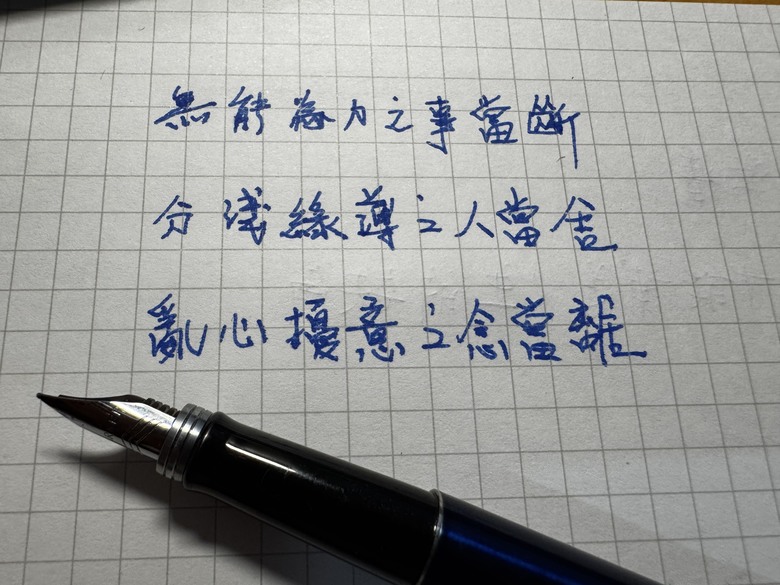 無能為力之事當斷
分淺緣薄之人當舍
亂心擾意之念當離